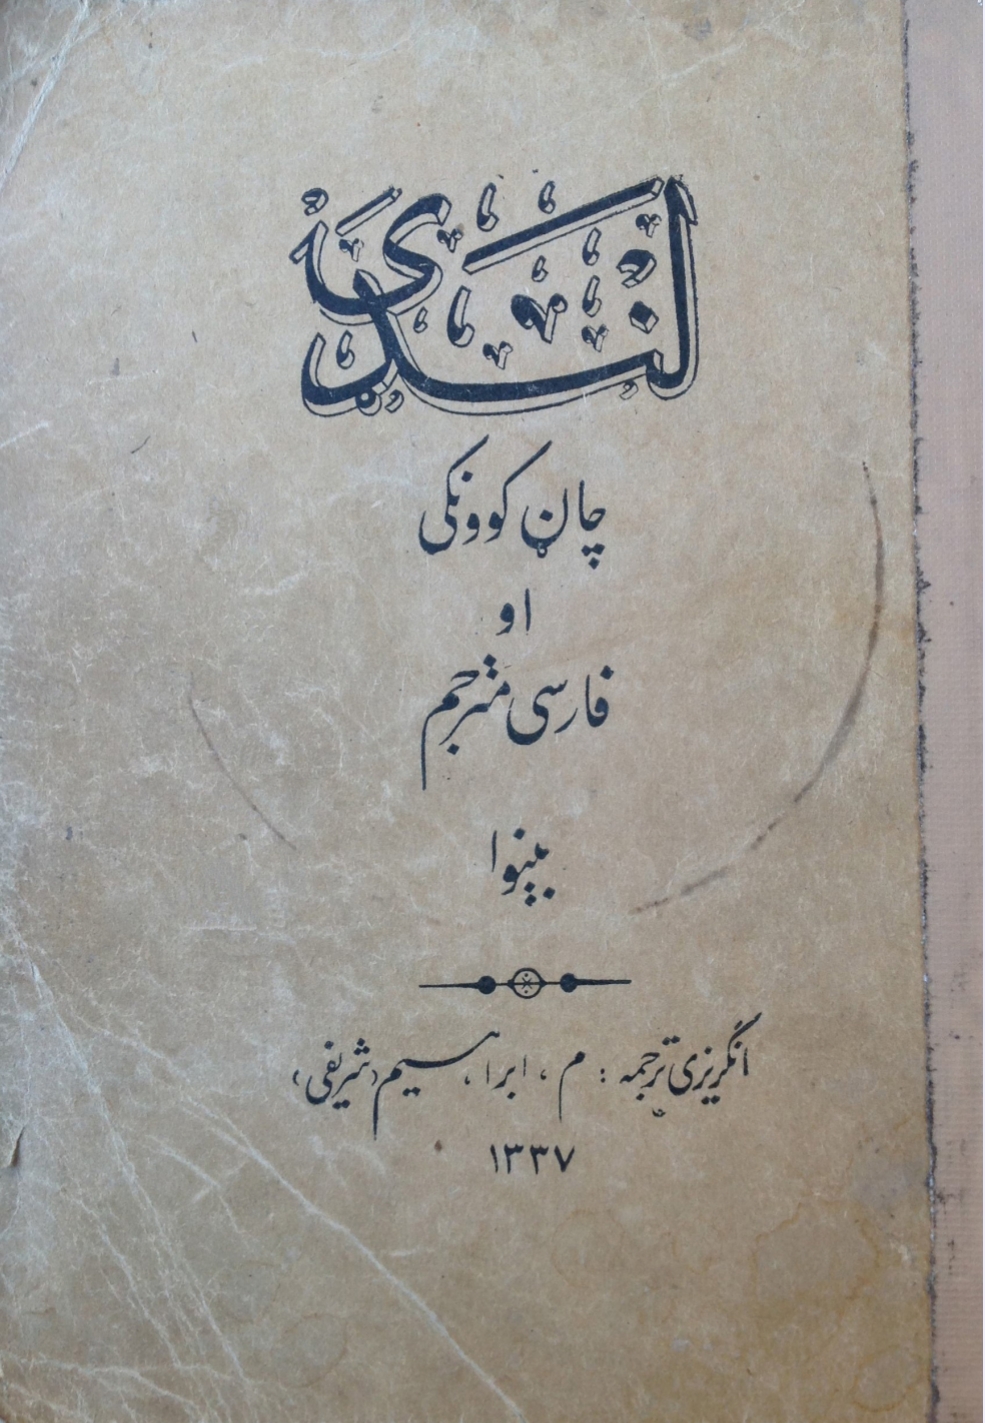 لنډۍ
چاڼ کوونکی
او
فارسی مترجم
بېنوا
انگریزی ترجمه : م ، ابراهیم «شریفی»
۱۳۳۷